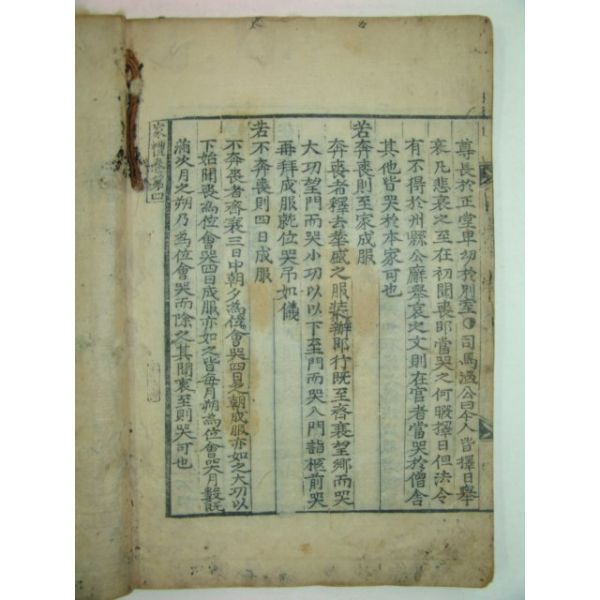 尊長於正堂卑幼於別室○司馬溫公曰今人皆擇日舉
哀凡悲哀之至在初聞喪即當哭之何暇擇日但法令
有不得於州縣公廨舉哀之文則在官者當哭於僧舍
其他皆哭於本家可也
若奔喪則至家成服
奔喪者釋去華盛之服裝辦即行既至齊衰望鄉而哭
大功望門而哭小功以以下至門而哭入門詣柩前哭
再拜成服就位哭吊如儀
若不奔喪則四日成服
不奔喪者齊衰三日中朝夕為位會哭四日之朝成服亦如之大功以
下始聞喪為位會哭四日成服亦如之皆每月朔為位會哭月數既
滿次月之朔乃為位會哭而除之其間哀至則哭可也
家禮卷第四